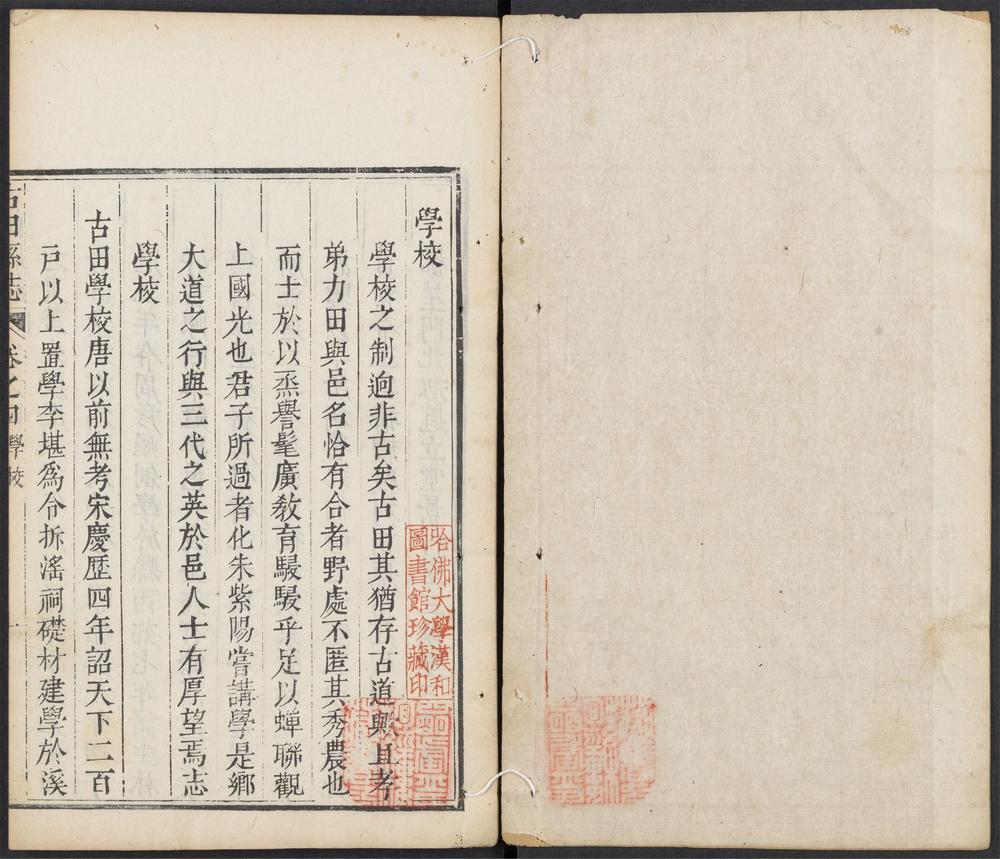 學校
學校之制逈非古矣古田其猶存古道歟且考
弟力田與邑名恰有合者野處不匿其秀農也
而士於以烝譽髦廣敎育駸駸乎足以蟬聯觀
上國光也君子所過者化朱紫陽嘗講學是鄉
大道之行與三代之英於邑人士有厚望焉志
學校
古田學校唐以前無考宋慶歷四年詔天下二百
戸以上置學李堪爲令拆滛祠礎材建學於溪
古田縣志
卷之四學校
一
哈佛大學漢和
圖書館珍藏印